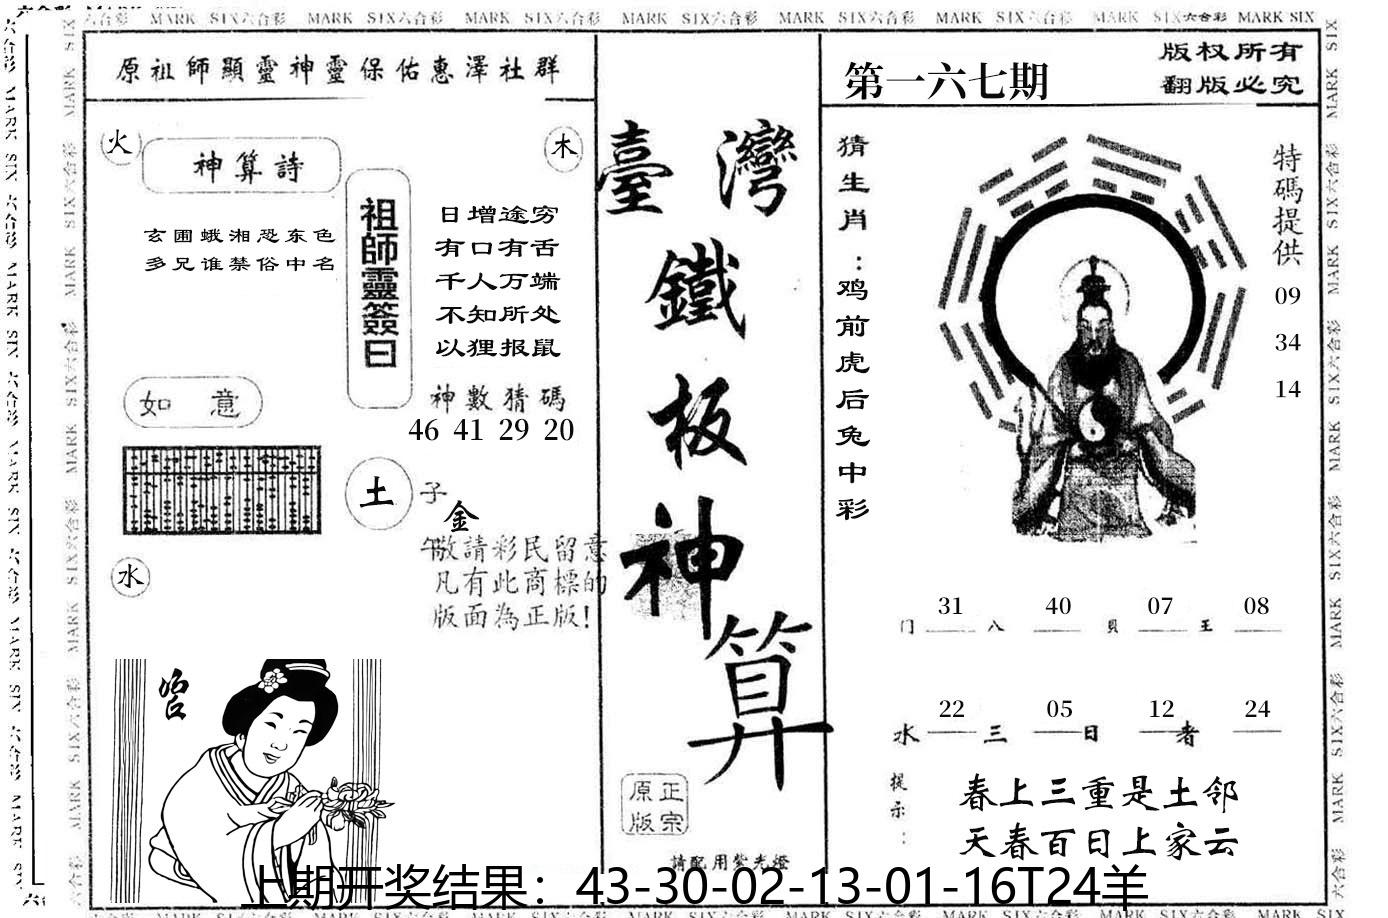 MARK SIX六合彩 MARK SIX六合彩 MARK SIX六合彩 MARK SIX六合彩 MARK SIX六合彩 MARK SIX六合彩 MARK SIX六合彩 MARK SIX
原祖師顯靈神靈保佑惠澤社群
火
神算詩
木
玄圃蛾湘恐东色
多兄谁禁俗中名
祖師靈簽曰
日增途穷
有口有舌
千人万端
不知所处
以狸报鼠
神數猜碼
46 41 29 20
如意
土
子
金
午
敬請彩民留意
凡有此商標的
版面為正版!
水
臺灣
鐵
板
神
算
正宗
原版
請配用紫光燈
第一六七期
版权所有
翻版必究
猜生肖：鸡前虎后兔中彩
特碼提供
09
34
14
31 40 07 08
门 八 貝 王
22 05 12 24
水 三 日 者
提示：
春上三重是土邻
天春百日上家云
上期开奖结果：43-30-02-13-01-16T24羊